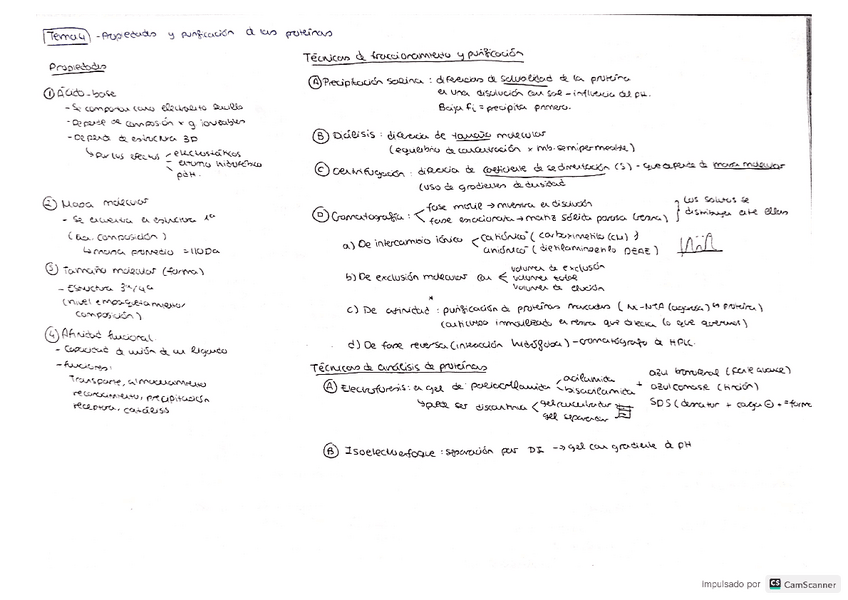 Tema 4 - Propiedades y purificación de las proteínas
Propiedades
① Ácido-base
- Se comportan como electrolito
- Depende de composición x g. ionizables
- Depende de estructura 3D
↳ Por los efectos - electrostáticos
- entorno hidrofóbico
- pH.
② Masa molecular
- Se encuentra en estructura 1ª
(aa. composición)
↳ masa promedio = 110 Da
③ Tamaño molecular (forma)
- Estructura 3ª/4ª
(nivel empaquetamiento/
composición)
④ Afinidad funcional
- Capacidad de unión de un ligando
- Funciones:
Transporte, almacenamiento
reconocimiento, precipitación
receptora, catálisis
Técnicas de fraccionamiento y purificación
Ⓐ Precipitación salina: diferencias de solubilidad de la proteína
en una disolución con sal - influencia del pH.
Baja Fi = precipita primero.
Ⓑ Diálisis: diferencia de tamaño molecular
(equilibrio de concentración x mb. semipermeable)
Ⓒ Centrifugación: diferencia de coeficiente de sedimentación (S) - que depende de masa molecular
(uso de gradientes de densidad
Ⓓ Cromatografía: fase móvil → muestra en disolución
fase estacionaria → matriz sólida porosa (resina)
Los solutos se
distribuyen entre ellas
a) De intercambio iónico catiónico (carboximetilo (CM))
aniónico (dietilaminoetilo DEAE)
b) De exclusión molecular con volumen de exclusión
volumen total
volumen de elución
c) De afinidad*: purificación de proteínas marcadas (Ni-NTA (agarosa) ↔ proteína)
(anticuerpo inmovilizado en resina que detecta lo que queremos)
d) De fase reversa (interacción hidrófoba) - cromatógrafo de HPLC.
Técnicas de análisis de proteínas
Ⓐ Electroforesis: en gel de poliacrilamida acrilamida
bisacrilamida
+ azul bromofenol (frente avance)
azul comassie (tinción)
SDS (desnatur + carga ⊖ + = forma
↳ puede ser discontinua gel concentrador
gel separador
Ⓑ Isoelectroenfoque: separación por DI → gel con gradiente de pH
Impulsado por CS CamScanner